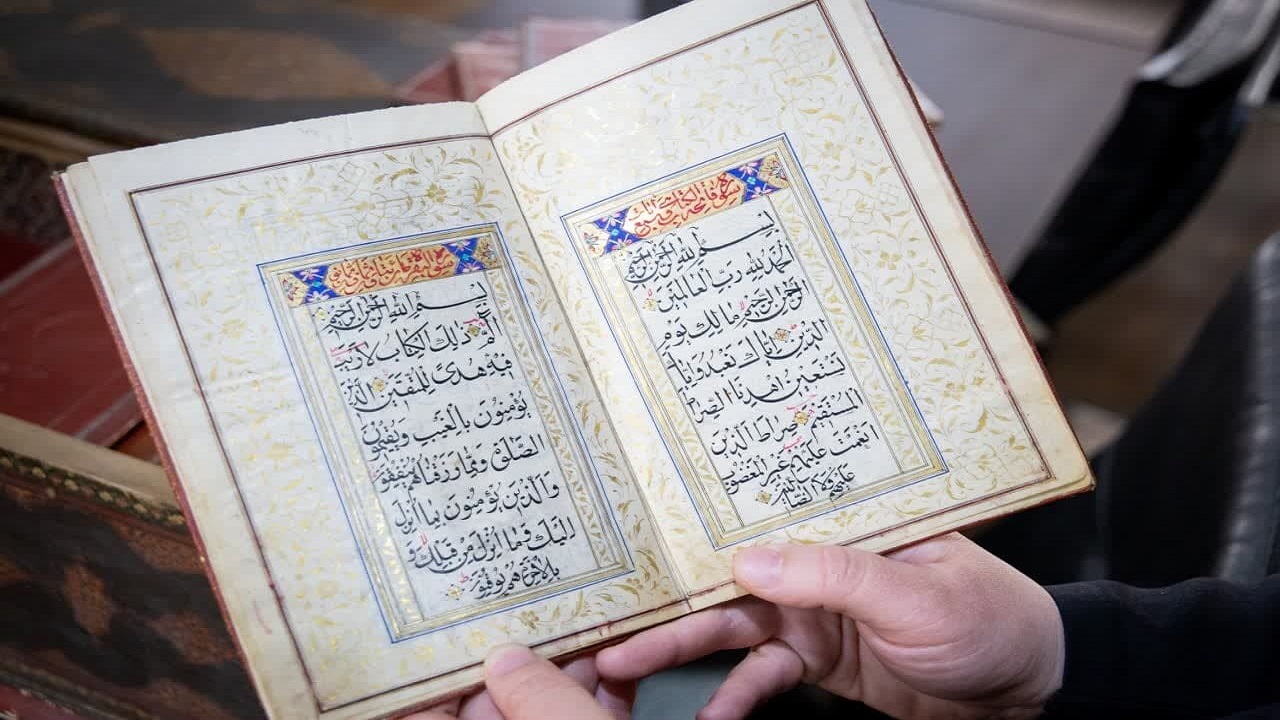 سورة فاتحة الكتاب
بِسْمِ اللهِ الرَّحْمٰنِ الرَّحِيمِ
اَلْحَمْدُ لِلّٰهِ رَبِّ الْعَالَمِينَ
الرَّحْمٰنِ الرَّحِيمِ مَالِكِ يَوْمِ
الدِّينِ اِيَّاكَ نَعْبُدُ وَاِيَّاكَ
نَسْتَعِينُ اِهْدِنَا الصِّرَاطَ
الْمُسْتَقِيمَ صِرَاطَ الَّذِينَ
اَنْعَمْتَ عَلَيْهِمْ غَيْرِ الْمَغْضُوبِ
عَلَيْهِمْ وَلَا الضَّالِّينَ
سورة البقرة
بِسْمِ اللهِ الرَّحْمٰنِ الرَّحِيمِ
الٓمٓ ذٰلِكَ الْكِتَابُ لَا رَيْبَ
فِيهِ هُدًى لِلْمُتَّقِينَ الَّذِينَ
يُؤْمِنُونَ بِالْغَيْبِ وَيُقِيمُونَ
الصَّلٰوةَ وَمِمَّا رَزَقْنَاهُمْ يُنْفِقُونَ
وَالَّذِينَ يُؤْمِنُونَ بِمَا اُنْزِلَ
اِلَيْكَ وَمَا اُنْزِلَ مِنْ قَبْلِكَ وَ
بِالْاٰخِرَةِ هُمْ يُوقِنُونَ